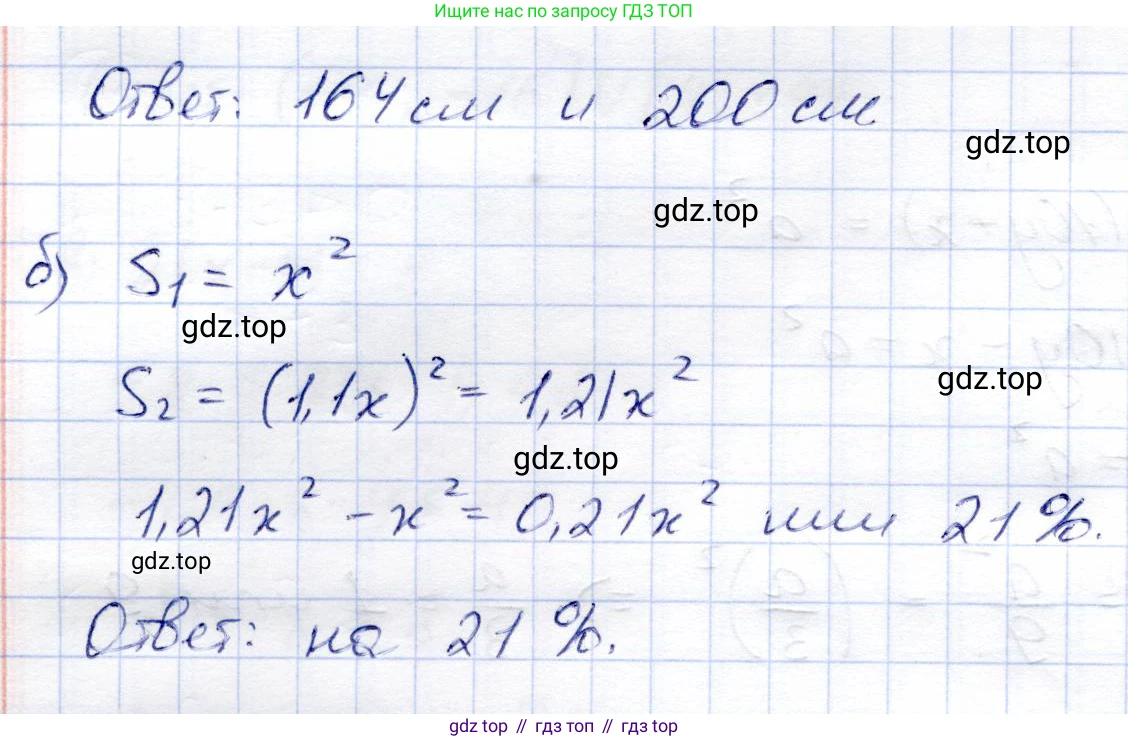 Ищите нас по запросу ГДЗ ТОП
Ответ: 164 см и 200 см
gdz.top
gdz.top
б) S₁ = x²
gdz.top
S₂ = (1,1x)² = 1,21x²
gdz.top
gdz.top
1,21x² - x² = 0,21x² или 21%.
gdz.top
Ответ: на 21%.
gdz.top // гдз топ // гдз top